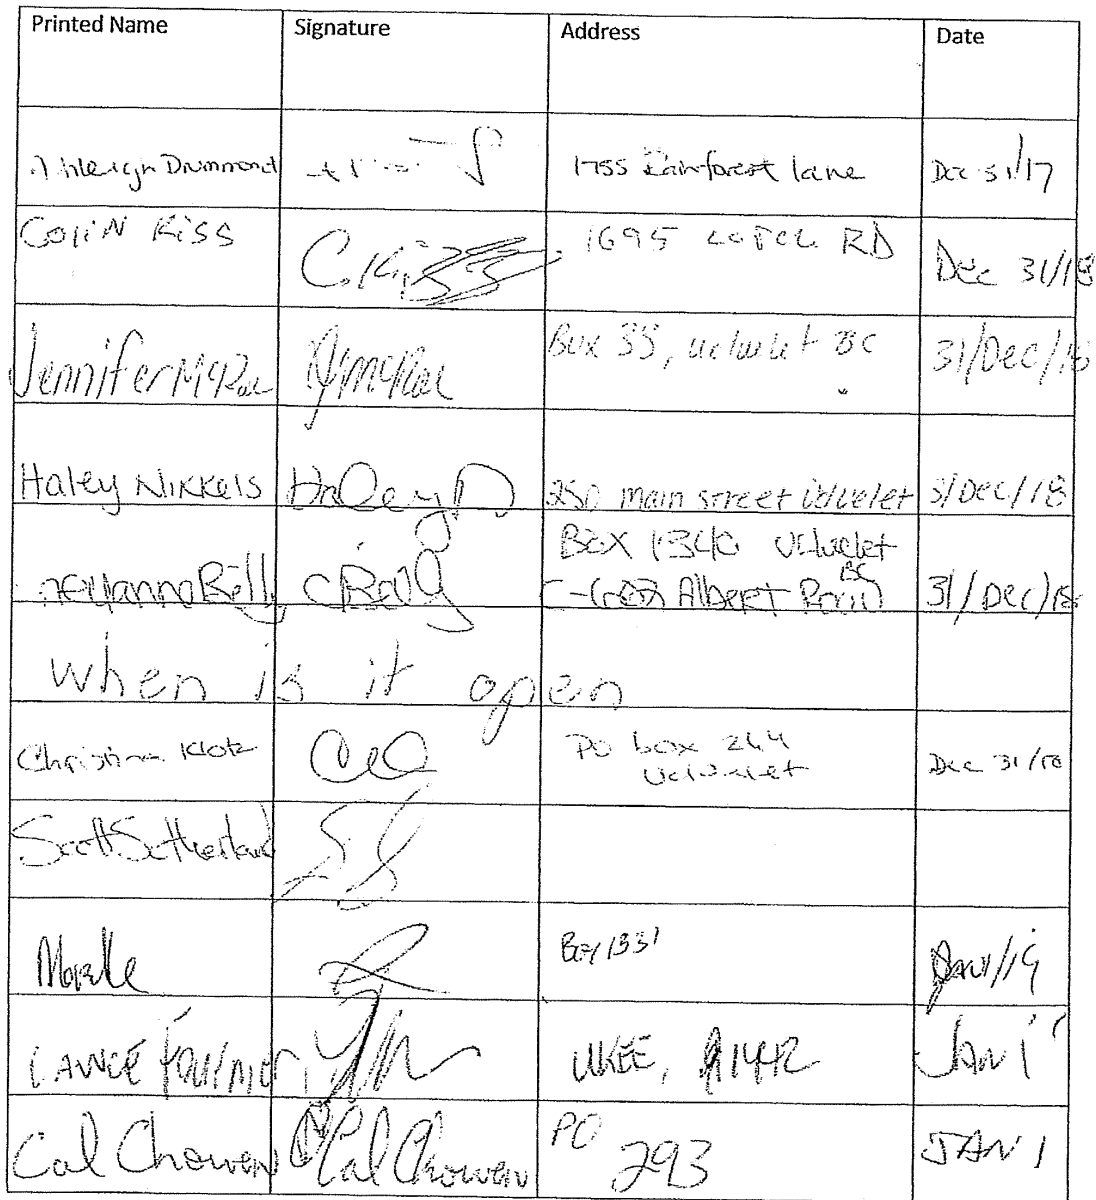 Printed Name Signature Address Date
Drummond 1755 Rainforest lane Dec 31/17
Colin Kiss C. Kiss 1695 RD Dec 31/18
Jennifer McRae JMcRae Box 35, Ucluelet BC 31/Dec/18
Haley Nikkels Haley 250 main street Ucluelet 31/Dec/18
Box 1340 Ucluelet
BC
Albert Road 31/Dec/18
when is it open
Christina Klotz PO box 244 Dec 31/18
Ucluelet
Scott Sutherland
Box 1331 Jan1/19
LANCE UKEE, JAN 1
Cal Chowen Cal Chowen PO 293 JAN 1